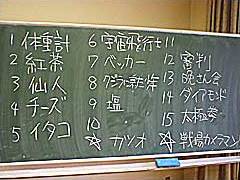 1 体重計
2 紅茶
3 仙人
4 チーズ
5 イタコ
6 宇宙飛行士
7 ベッカー
8
9 塩
10
☆ カツオ
11
12 審判
13 晩さん会
14 ダイアモンド
15 太極拳
☆ 戦場カメラマン